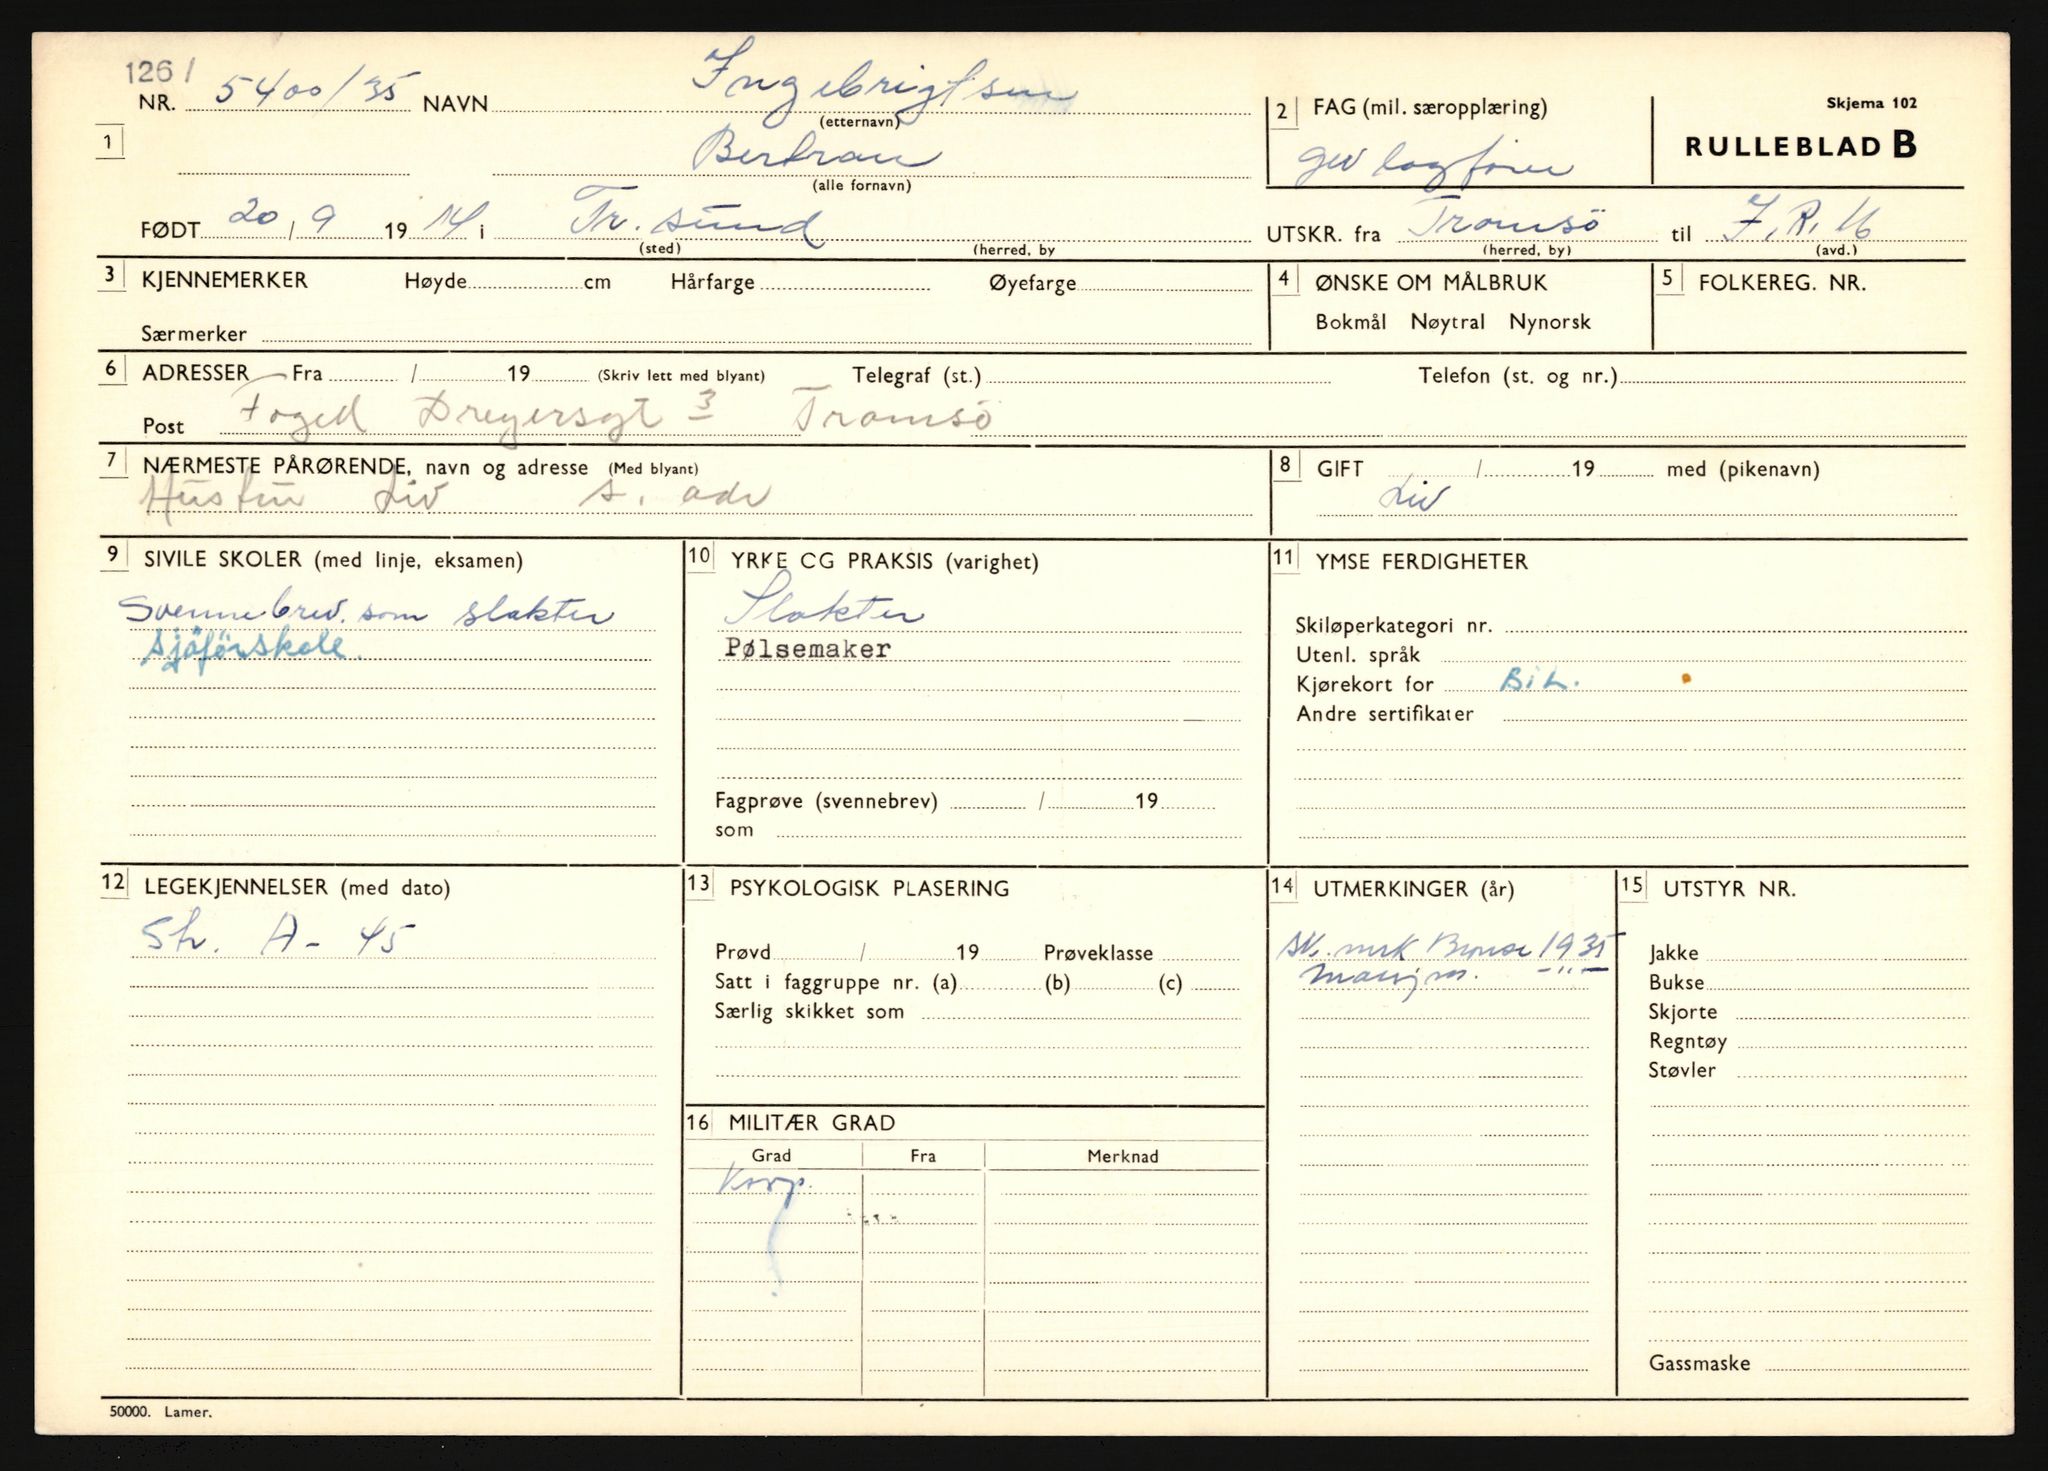 126/
NR. 5400/35 NAVN Ingebrigtsen
(etternavn)
1 Bertran
(alle fornavn)
FØDT 20/9 1914 i Tr. sund
(sted) (herred, by
2 FAG (mil. særopplæring)
gev lagfører
Skjema 102
RULLEBLAD B
UTSKR. fra Tromsö til I.R. 16
(herred, by) (avd.)
3 KJENNEMERKER Høyde cm Hårfarge Øyefarge
Særmerker
4 ØNSKE OM MÅLBRUK
Bokmål Nøytral Nynorsk
5 FOLKEREG. NR.
6 ADRESSER Fra / 19 (Skriv lett med blyant) Telegraf (st.) Telefon (st. og nr.)
Post Foged Dreyersgt 3 Tromsö
7 NÆRMESTE PÅRØRENDE, navn og adresse (Med blyant)
Hustru Liv s. adr
8 GIFT / 19 med (pikenavn)
Liv
9 SIVILE SKOLER (med linje, eksamen)
Svennebrev. som slakter
sjåførskole.
10 YRKE CG PRAKSIS (varighet)
Slakter
Pølsemaker
Fagprøve (svennebrev) / 19
som
11 YMSE FERDIGHETER
Skiløperkategori nr.
Utenl. språk
Kjørekort for Bil.
Andre sertifikater
12 LEGEKJENNELSER (med dato)
Str. A - 45
13 PSYKOLOGISK PLASERING
Prøvd / 19 Prøveklasse
Satt i faggruppe nr. (a) (b) (c)
Særlig skikket som
14 UTMERKINGER (år)
sk. mrk Bronse 1935
-"-
15 UTSTYR NR.
Jakke
Bukse
Skjorte
Regntøy
Støvler
Gassmaske
16 MILITÆR GRAD
Grad Fra Merknad
Korp.
50000. Lamer.